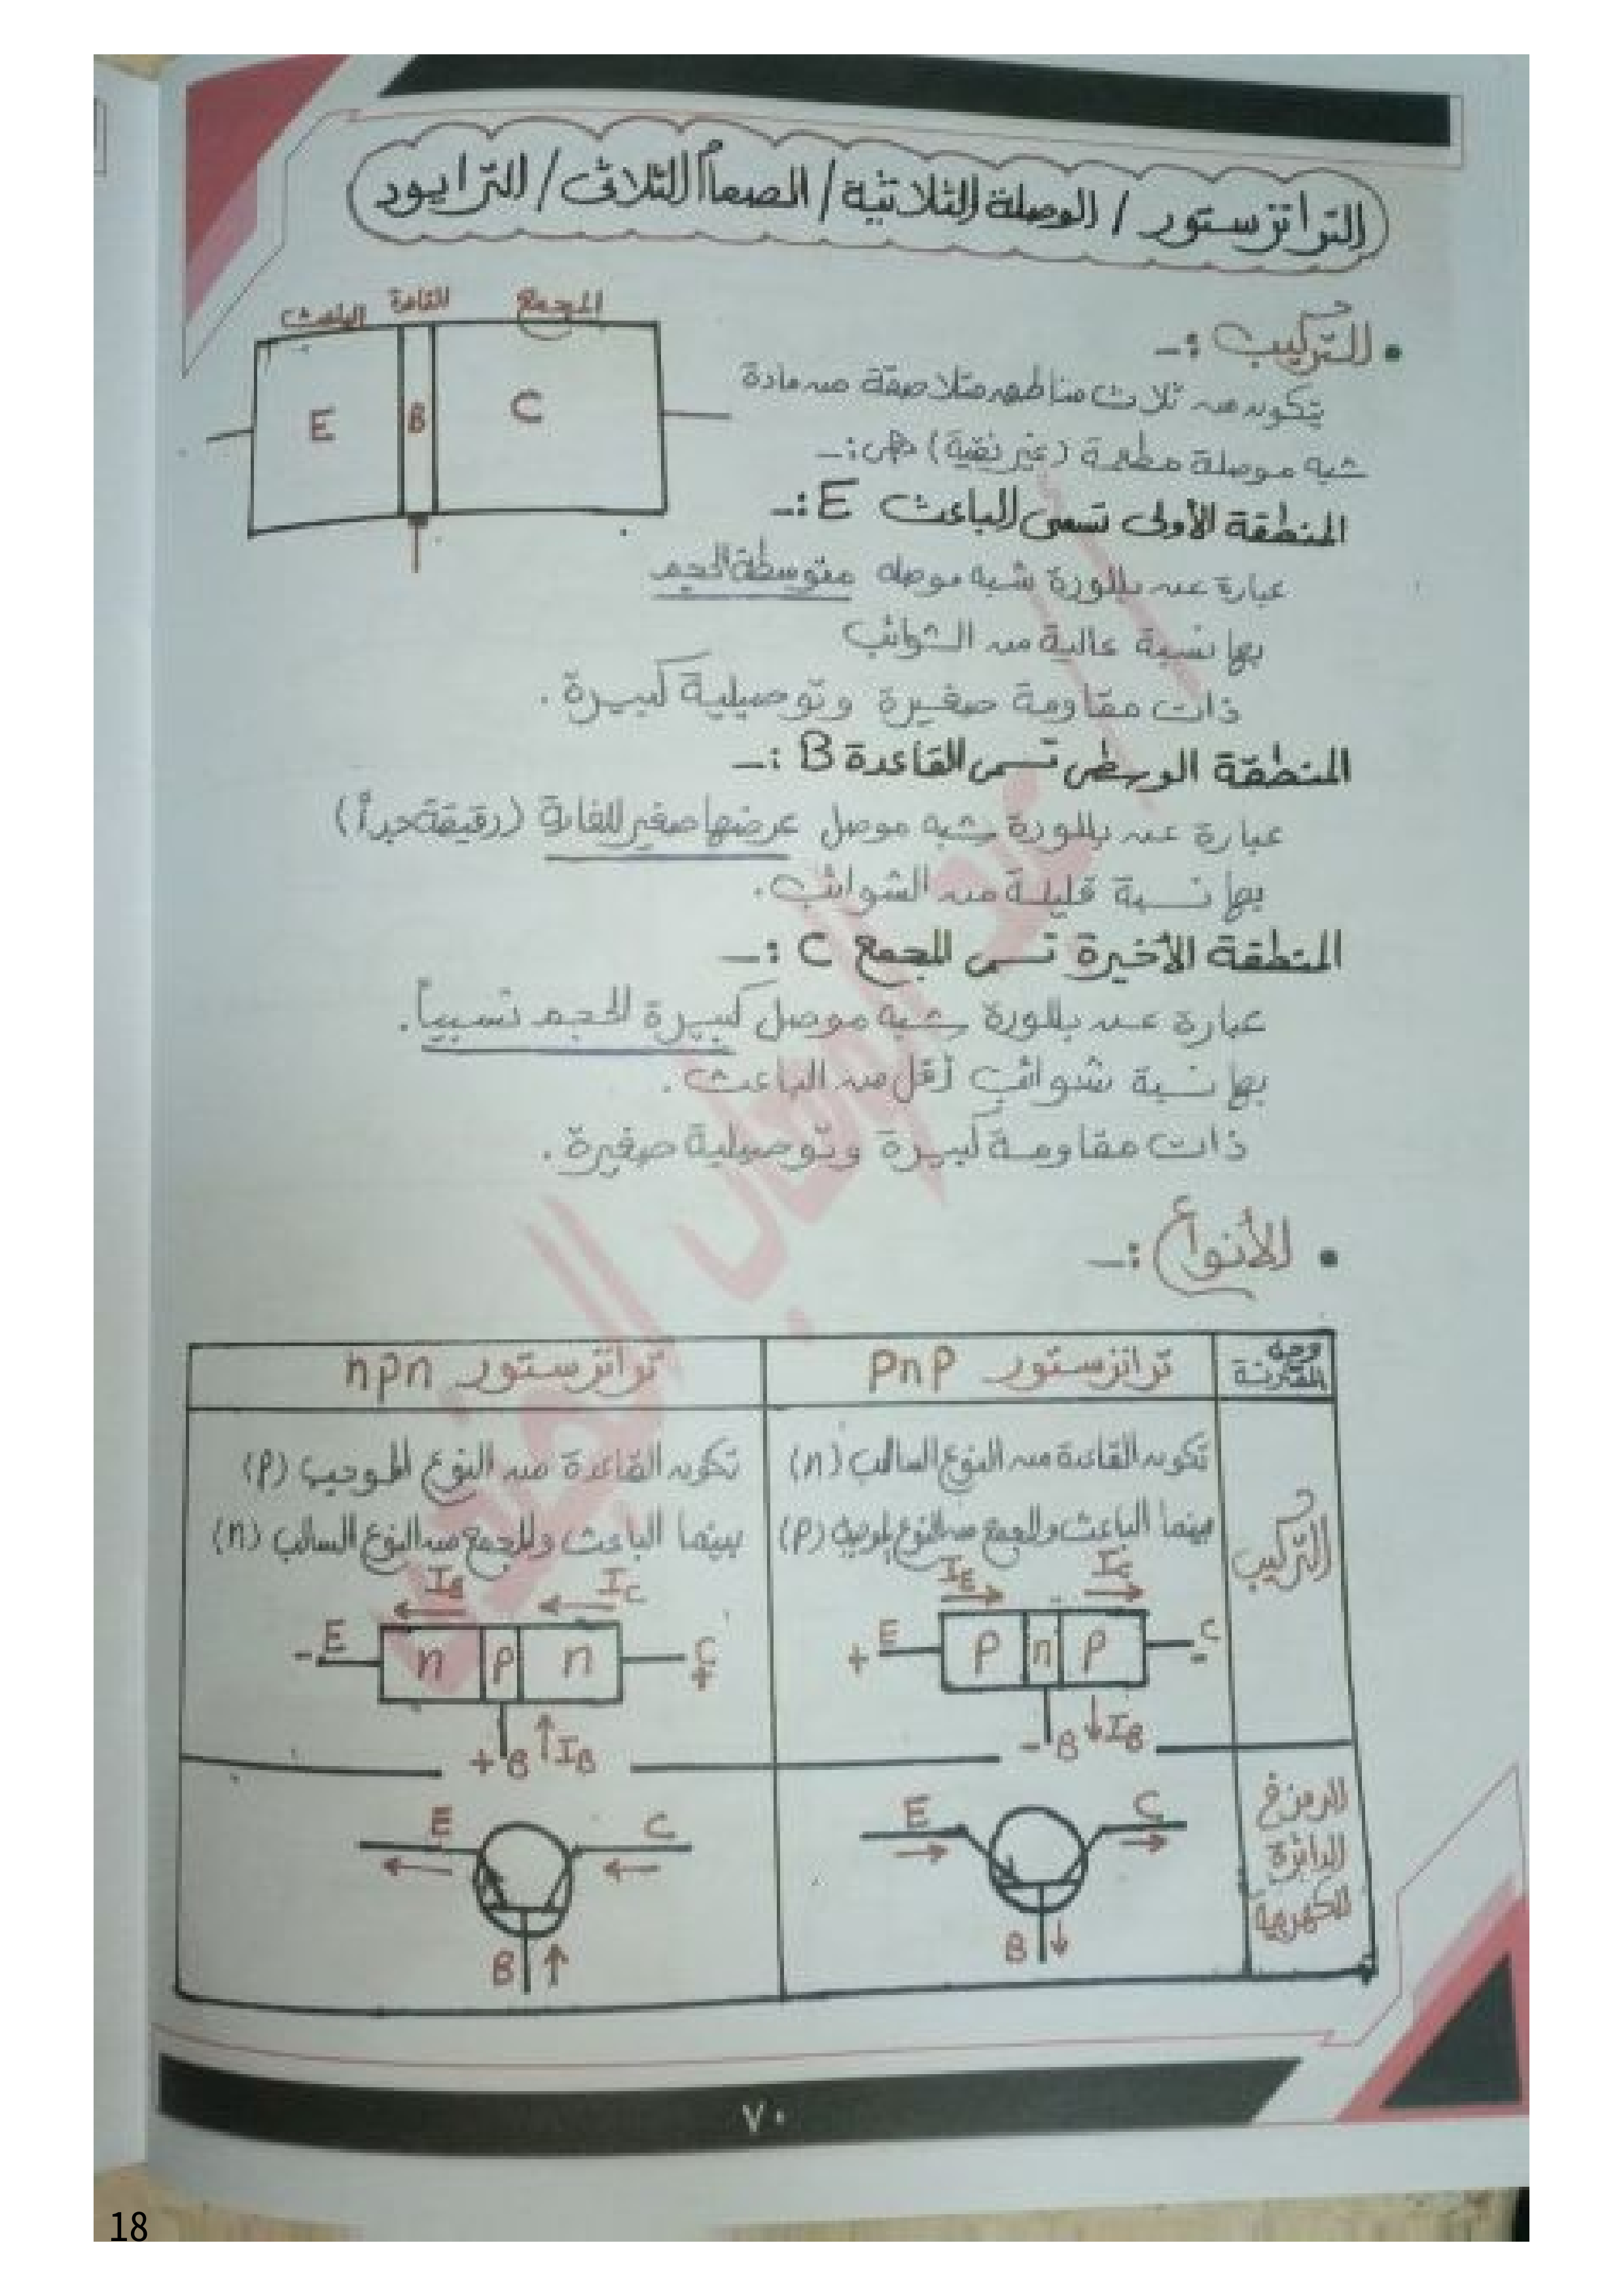 الترانزستور / الوصلة الثلاثية / الصمام الثلاثى / الترايود
الباعث القاعدة المجمع
E B C
• التركيب :-
يتكون من ثلاث مناطق متلاصقة من مادة
شبه موصلة مطعمة (غير نقية) هى :-
المنطقة الأولى تسمى الباعث E :-
عبارة عن بللورة شبه موصله متوسطة الحجم
بها نسبة عالية من الشوائب
ذات مقاومة صغيرة وتوصيلية كبيرة .
المنطقة الوسطى تسمى القاعدة B :-
عبارة عن بللورة شبه موصل عرضها صغير للغاية (رقيقة جداً)
بها نسبة قليلة من الشوائب .
المنطقة الأخيرة تسمى المجمع C :-
عبارة عن بللورة شبه موصل كبيرة الحجم نسبياً .
بها نسبة شوائب أقل من الباعث .
ذات مقاومة كبيرة وتوصيلية صغيرة .
• الأنواع :-
وجه المقارنة
ترانزستور pnp
ترانزستور npn
التركيب
تكون القاعدة من النوع السالب (n)
بينما الباعث والمجمع من النوع الموجب (p)
IE IC
+ E p n p C -
- B IB
تكون القاعدة من النوع الموجب (p)
بينما الباعث والمجمع من النوع السالب (n)
IC
- E n p n C +
+ B IB
الرمز في
الدائرة
الكهربية
E C
B
E C
B
٧٠
18